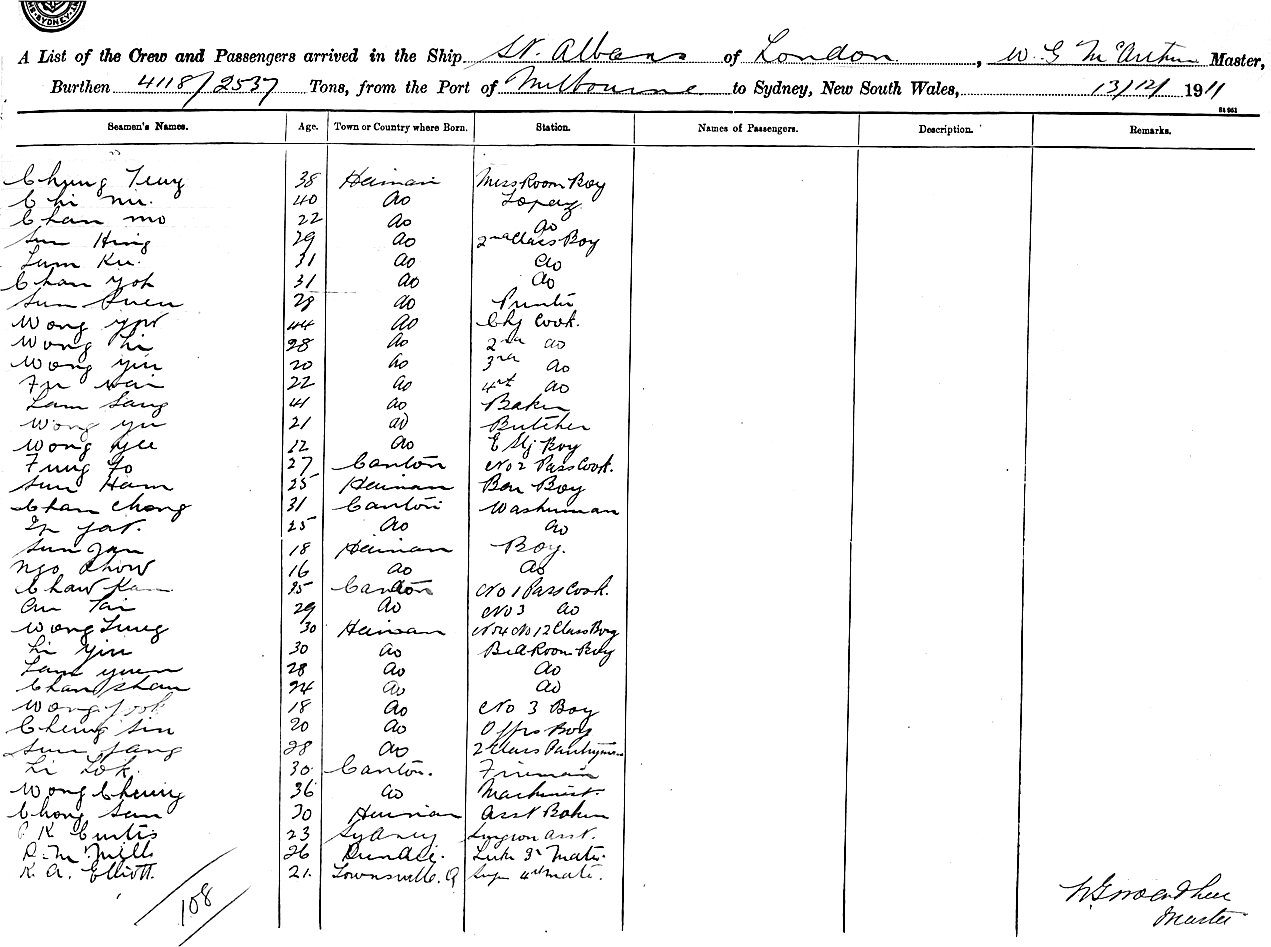 SYDNEY
A List of the Crew and Passengers arrived in the Ship St. Albans of London, W G McArthur Master,
Burthen 4118/2537 Tons, from the Port of Melbourne to Sydney, New South Wales, 13/12/ 1911
Seamen's Names. Age. Town or Country where Born. Station. Names of Passengers. Description. Remarks.
Chung 38 Hainan Mess Room Boy
Chi 40 do
Chan mo 22 do do
Sun Hing 29 do 2nd Class Boy
Lam 31 do do
Chan Yok 31 do do
Sun 28 do
Wong 44 do Chf Cook.
Wong Li 28 do 2nd do
Wong yin 20 do 3rd do
Fu Wai 22 do 4th do
Lam Sang 41 do Baker
Wong yu 21 do Butcher
Wong yee 22 do Boy
Fung Fo 27 Canton No 2 Pass Cook.
Sun Ham 25 Hainan Boy
Chan Chong 31 Canton Washman
yat. 25 do do
Sun 18 Hainan Boy.
Ngo Chow 16 do do
Chaw Kam 35 Canton No 1 Pass Cook.
Tai 29 do No 3 do
Wong Lung 30 Hainan Class Boy
Li Yin 30 do Bed Room Boy
Lam yuen 28 do do
Chan Shan 24 do do
Wong Fook 18 do No 3 Boy
Cheng Sin 20 do Offrs Boy
Sun Sang 28 do 2 Class Pantryman
Li Lok. 30 Canton. Fireman
Wong Cheung 36 do Machinist.
Chong San 30 Hainan Asst Baker
K Curtis 23 Sydney Surgeon Asst.
D. Mc Mills 26 Dundee. 3rd Mate.
K. A. Elliott. 21. Townsville. Q 4th Mate.
108
Master